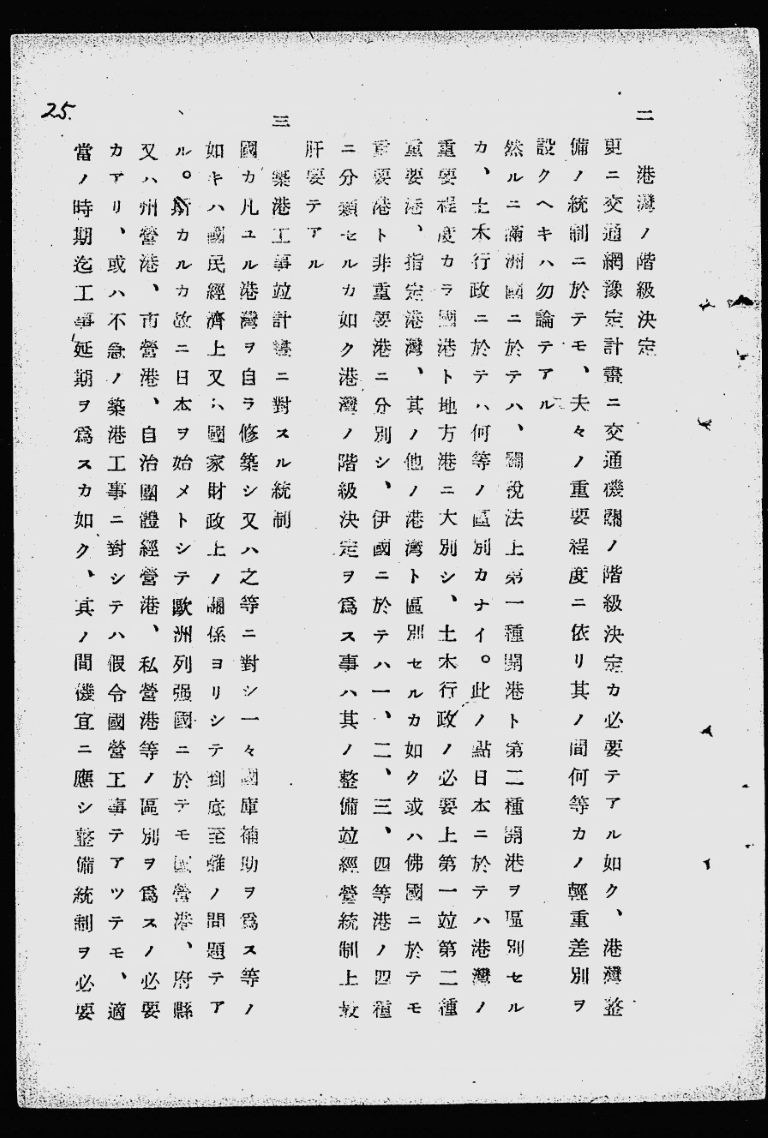 25.
二　港灣ノ階級決定
更ニ交通網豫定計畫ニ交通機關ノ階級決定カ必要テアル如ク、港灣整
備ノ統制ニ於テモ、夫々ノ重要程度ニ依リ其ノ間何等カノ輕重差別ヲ
設クヘキハ勿論テアル
然ルニ滿洲國ニ於テハ、關稅法上第一種開港ト第二種開港ヲ區別セル
カ、土木行政ニ於テハ何等ノ區別カナイ。此ノ點日本ニ於テハ港灣ノ
重要程度カラ國港ト地方港ニ大別シ、土木行政ノ必要上第一竝第二種
重要港、指定港灣、其ノ他ノ港灣ト區別セルカ如ク或ハ佛國ニ於テモ
重要港ト非重要港ニ分別シ、伊國ニ於テハ一、二、三、四等港ノ四種
ニ分類セルカ如ク港灣ノ階級決定ヲ爲ス事ハ其ノ整備竝經營統制上最
肝要テアル
三　築港工事竝計畫ニ對スル統制
國カ凡ユル港灣ヲ自ラ修築シ又ハ之等ニ對シ一々國庫補助ヲ爲ス等ノ
如キハ國民經濟上又ハ國家財政上ノ關係ヨリシテ到底至難ノ問題テア
ル。斯カルカ故ニ日本ヲ始メトシテ歐洲列强國ニ於テモ國營港、府縣
又ハ州營港、市營港、自治團體經營港、私營港等ノ區別ヲ爲スノ必要
カアリ、或ハ不急ノ築港工事ニ對シテハ假令國營工事テアツテモ、適
當ノ時期迄工事延期ヲ爲スカ如ク、其ノ間機宜ニ應シ整備統制ヲ必要